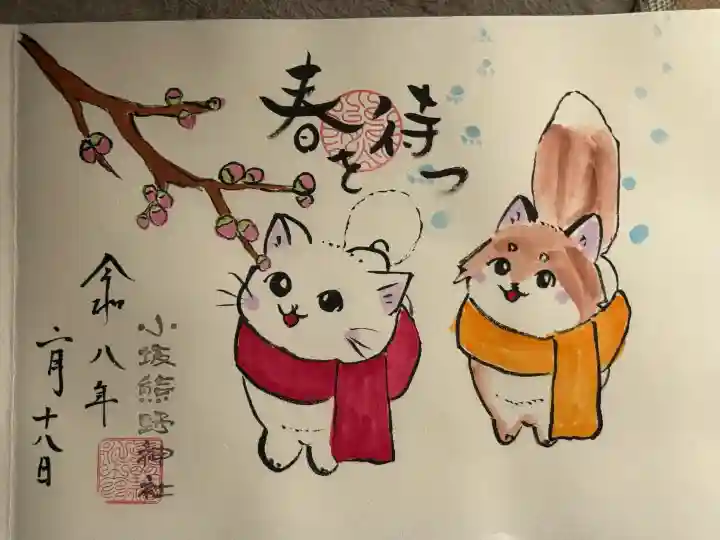 春を待つ
令和八年
二月十八日
小坂熊野神社